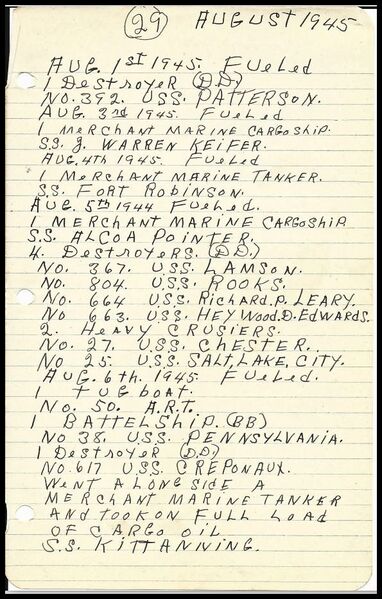 (29) AUGUST 1945
AUG. 1st 1945. FUELED
1 DESTROYER (DD.)
NO. 392. USS. PATTERSON.
AUG 3rd 1945. FUELED
1 MERCHANT MARINE CARGOSHIP.
S.S. J. WARREN KEIFER.
AUG. 4th 1945. FUELED
1 MERCHANT MARINE TANKER.
SS. FORT ROBINSON.
AUG. 5th 1944 FUELED.
1 MERCHANT MARINE CARGOSHIP.
S.S. ALCOA POINTER.
4. DESTROYERS. (DD.)
NO. 367. U.S.S. LAMSON.
NO. 804. U.S.S. ROOKS.
NO. 664 U.S.S. RICHARD. P. LEARY.
NO 663. U.S.S. HEYWOOD. D. EDWARDS.
2. HEAVY CRUSIERS.
NO. 27. U.S.S. CHESTER.
NO 25. U.S.S. SALT, LAKE, CITY.
AUG. 6th. 1945. FUELED.
1 TUGBOAT.
NO. 50. A.R.T.
1 BATTELSHIP. (BB)
NO 38. USS. PENNSYLVANIA.
1 DESTROYER (DD.)
NO. 617 U.S.S. CREPONAUX.
WENT ALONGSIDE A
MERCHANT MARINE TANKER
AND TOOK ON FULL LOAD
OF CARGO OIL
S.S. KITTANNING.